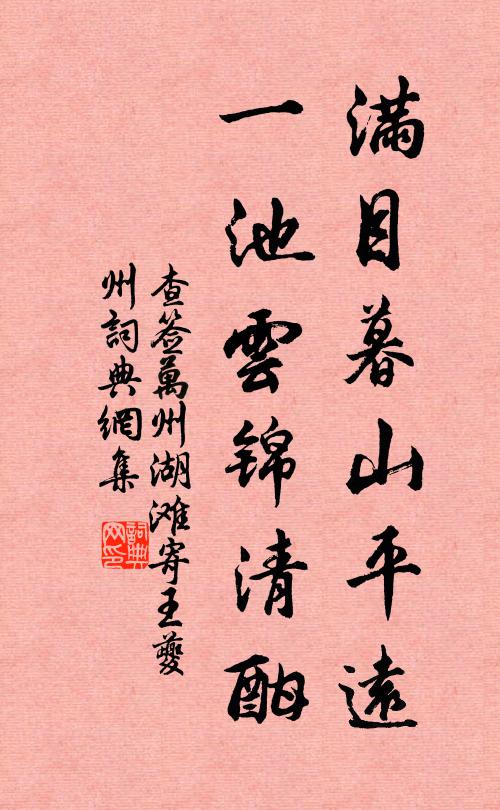 满目暮山平遠
一池雲锦清酣
查签萬州湖滩寄王夔
州詞典網集
詞典網印